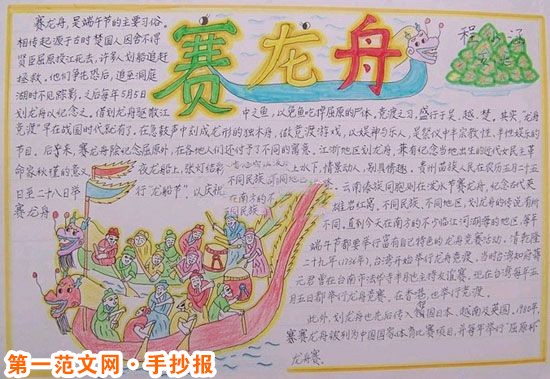 赛龙舟
程小涵
赛龙舟,是端午节的主要习俗。
相传起源于古时楚国人因舍不得
贤臣屈原投江死去,许多人划船追赶
拯救。他们争先恐后,追至洞庭
湖时不见踪影,之后每年5月5日
划龙舟以纪念之。借划龙舟驱散江
中之鱼,以免鱼吃掉屈原的尸体。竞渡之习,盛行于吴、越、楚。其实,"龙舟
竞渡"早在战国时代就有了。在急鼓声中划成龙形的独木舟,做竞渡游戏,以娱神与乐人,是祭仪中半宗教性、半娱乐的
节目。后来,赛龙舟除纪念屈原外,在各地人们还付予了不同的寓意。江浙地区划龙舟,兼有纪念当地出生的近代女民主革
命家秋瑾的意义
夜龙船上,张灯结彩
上水下,情景动人,别具情趣。贵州苗族人民在农历五月二十五
日至二十八日举
行"龙船节",以庆祝
云南傣族同胞则在泼水节赛龙舟,纪念古代英
赛龙舟
不同民族
雄岩红窝。不同民族、不同地区,划龙舟的传说有所
在南方的不
不同。直到今天在南方的不少临江河湖海的地区,每年
端午节都要举行富有自己特色的龙舟竞赛活动。清乾隆
二十九年(1736年),台湾开始举行龙舟竞渡。当时台湾知府蒋
元君曾在台南市法华寺半月池主持友谊赛。现在台湾每年五
月五日都举行龙舟竞赛。在香港,也举行竞渡。
此外,划龙舟也先后传入日本、越南及英国。1980年,
赛龙舟被列为中国国家体育比赛项目,并每年举行"屈原杯"
龙舟赛。
第一范文网·手抄报